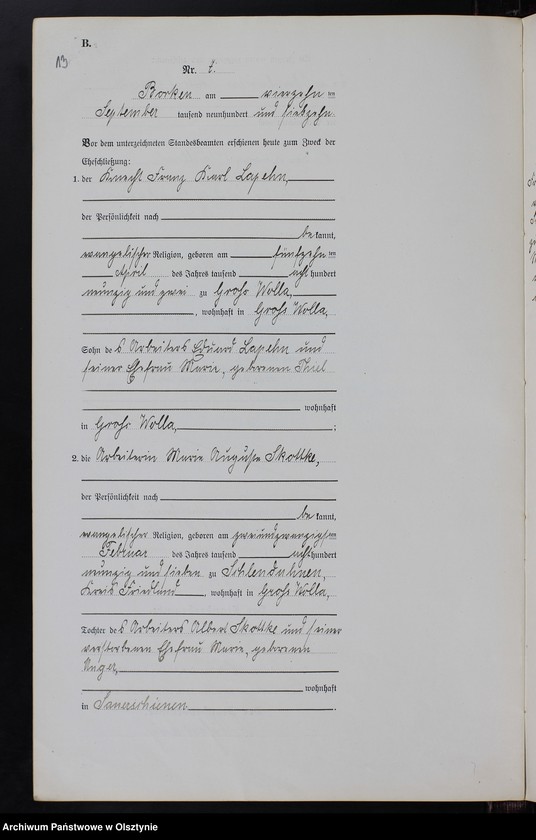 B.
13
Nr. 7.
Borken am vierzehn ten
September tausend neunhundert und siebzehn.
Vor dem unterzeichneten Standesbeamten erschienen heute zum Zweck der
Eheschließung:
1. der Knecht Franz Karl Lapehn,
der Persönlichkeit nach
be kannt,
evangelischer Religion, geboren am fünfzehn ten
April des Jahres tausend acht hundert
neunzig und zwei zu Groß Wolla,
, wohnhaft in Groß Wolla,
Sohn des Arbeiters Eduard Lapehn und
seiner Ehefrau Marie, geborenen Thiel
wohnhaft
in Groß Wolla, ;
2. die Arbeiterin Marie Auguste Skottke,
der Persönlichkeit nach
be kannt,
evangelischer Religion, geboren am zweiundzwanzigs ten
Februar des Jahres tausend acht hundert
neunzig und sieben zu
Kreis Friedland , wohnhaft in Groß Wolla,
Tochter des Arbeiters Albert Skottke und seiner
verstorbenen Ehefrau Marie, geborenen
Unger,
wohnhaft
in .
Archiwum Państwowe w Olsztynie